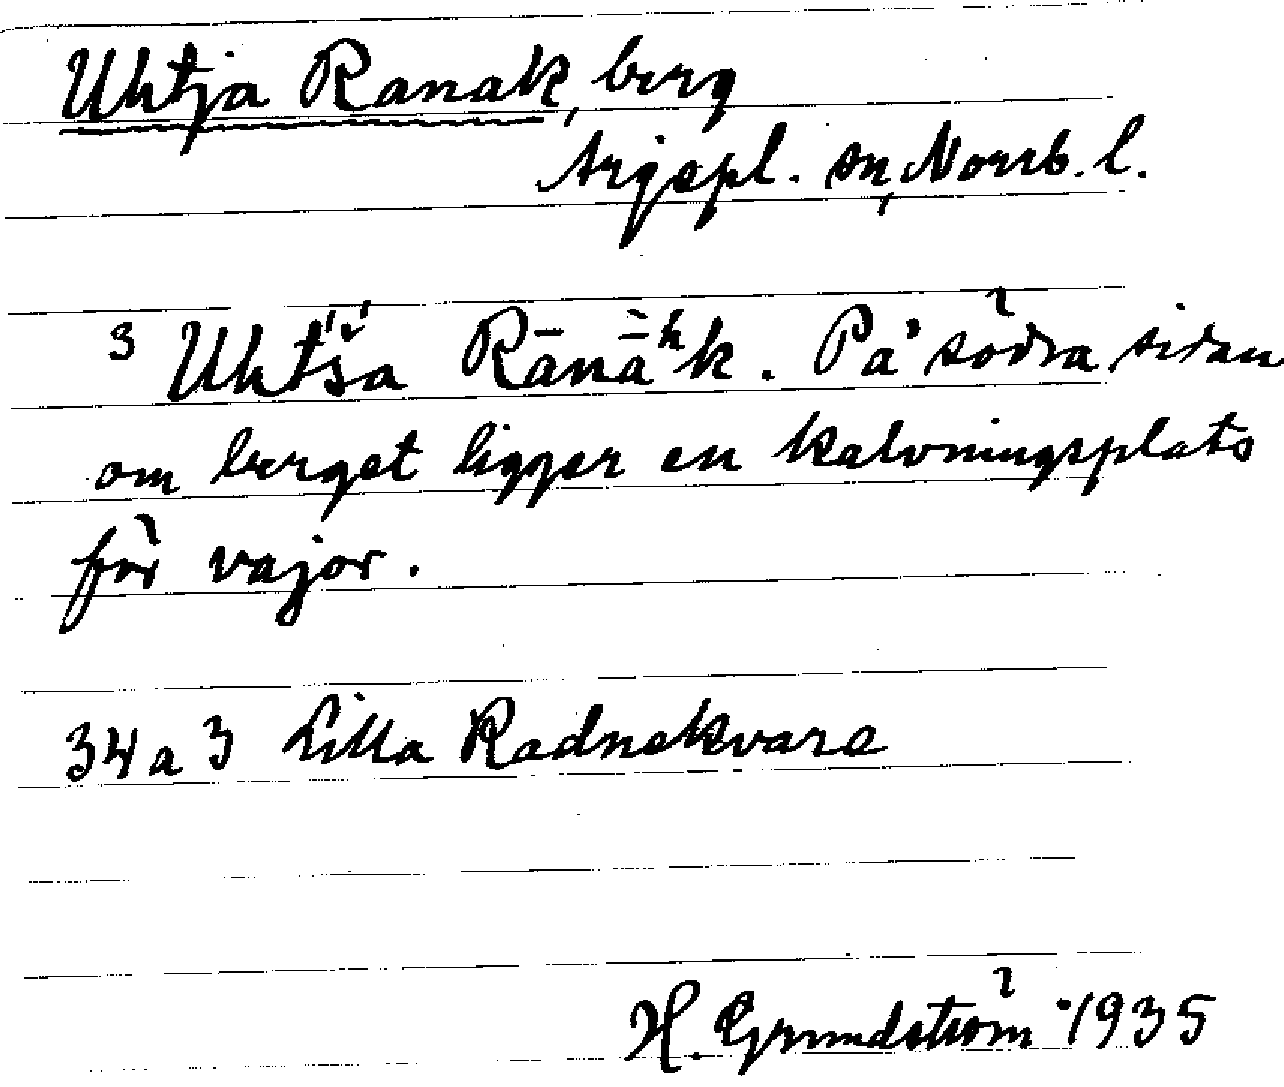 Uhtja Ranak, berg
Arjepl. sn, Norrb. l.
3 Uht́š́a Rānā̀ʰk. På södra sidan
om berget ligger en kalvningsplats
för vajor.
34a3 Lilla Radnekvare
H. Grundström 1935